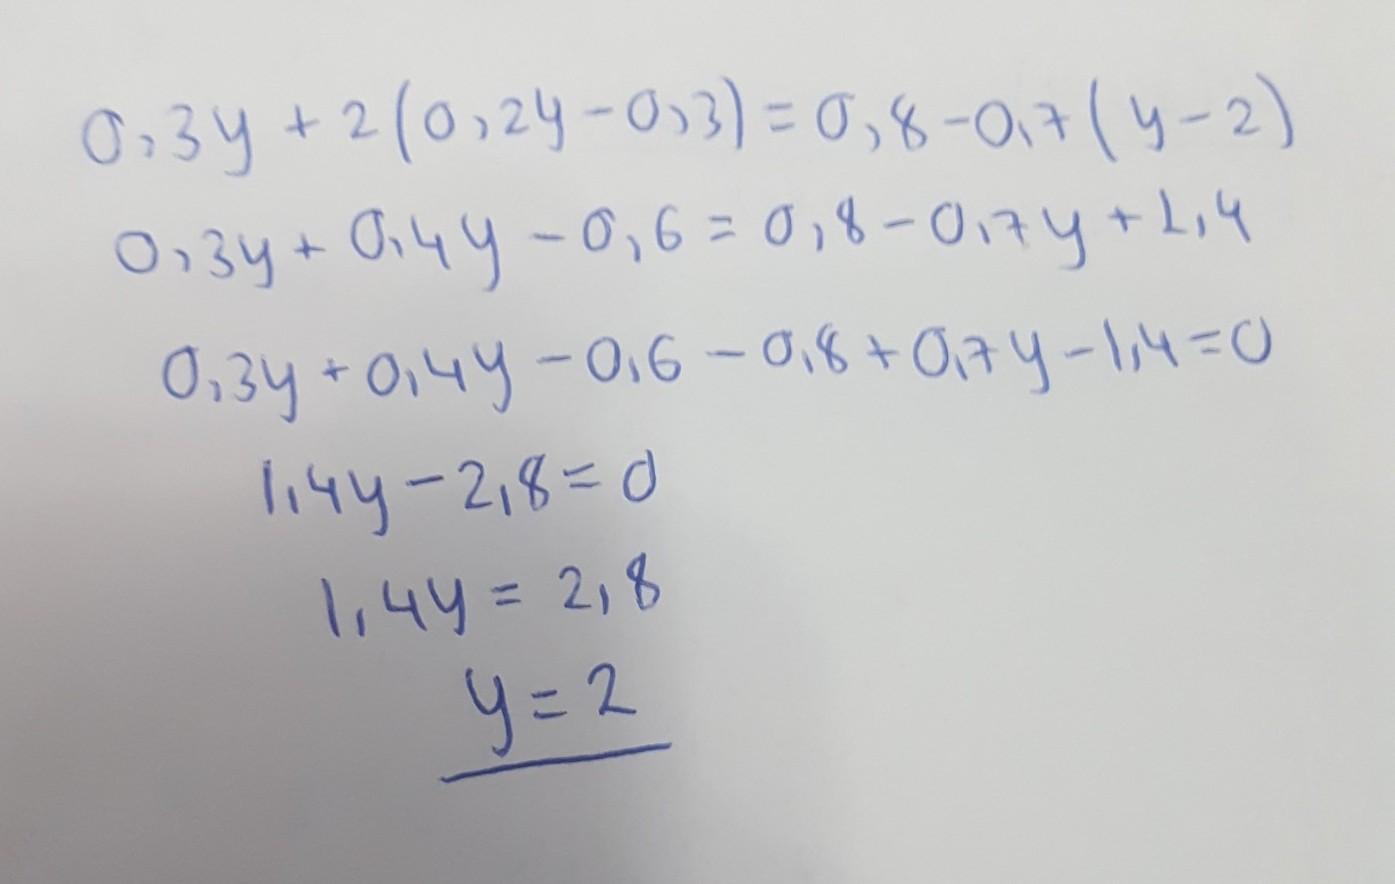 0,3y + 2(0,2y - 0,3) = 0,8 - 0,7(y - 2)
0,3y + 0,4y - 0,6 = 0,8 - 0,7y + 1,4
0,3y + 0,4y - 0,6 - 0,8 + 0,7y - 1,4 = 0
1,4y - 2,8 = 0
1,4y = 2,8
y = 2